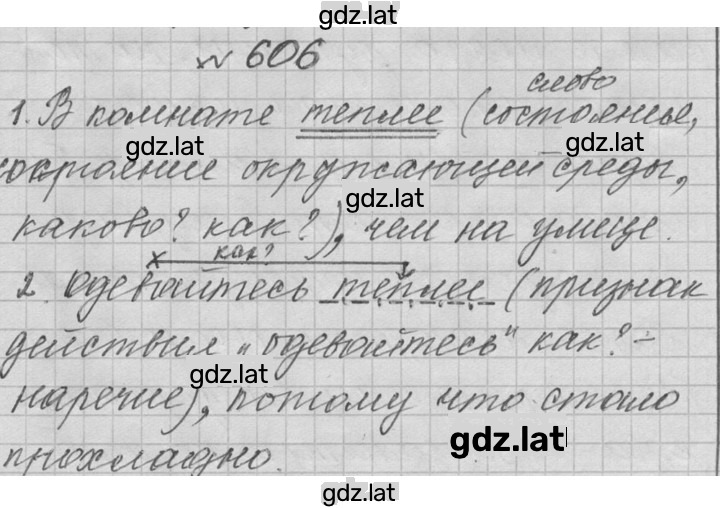 gdz.lat
№ 606
слово
1. В комнате теплее (состоянье,
gdz.lat
gdz.lat
состояние окружающей среды,
gdz.lat
каково? как?), чем на улице.
как?
2. Одевайтесь теплее (признак
действия „одевайтесь" как? –
gdz.lat
наречие), потому что стало
gdz.lat
прохладно.
gdz.lat